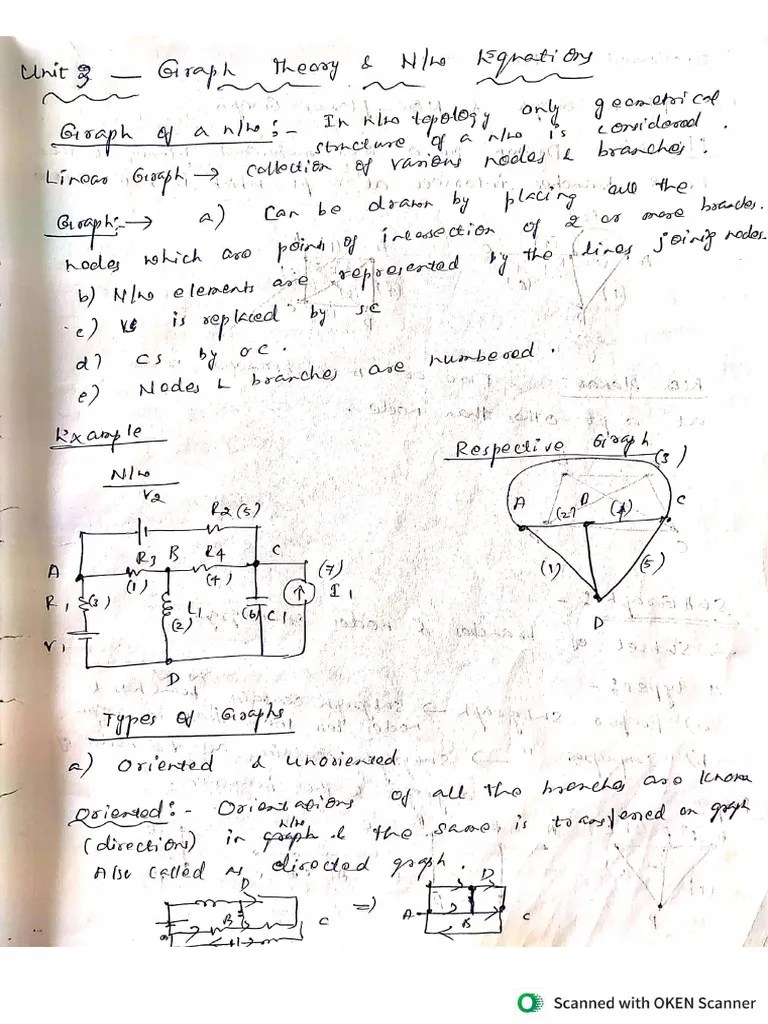 Unit 3 — Graph Theory & N/w Equations
Graph of a n/w :- In N/w topology only geometrical
structure of a n/w is considered.
Linear Graph → collection of various nodes & branches.
Graph:- → a) Can be drawn by placing all the
nodes which are point of intersection of 2 or more branches.
b) N/w elements are represented by the lines joinig nodes.
c) VS is replaced by SC
d) CS by OC.
e) Nodes & branches are numbered.
Example
Respective Graph
N/w
V2
R2 (5)
A
R3
(1)
B
R4
(4)
C
(7)
I1
R1
(3)
L1
(2)
(6)
C1
V1
D
(3)
A
(2)
B
(4)
C
(1)
(5)
D
Types of Graphs
a) Oriented & Unoriented
Oriented:- Orientations of all the branches are known
(directions) in n/w graph & the same is transferred on graph
Also called as directed graph.
D
B
C
=>
D
A
B
C
Scanned with OKEN Scanner